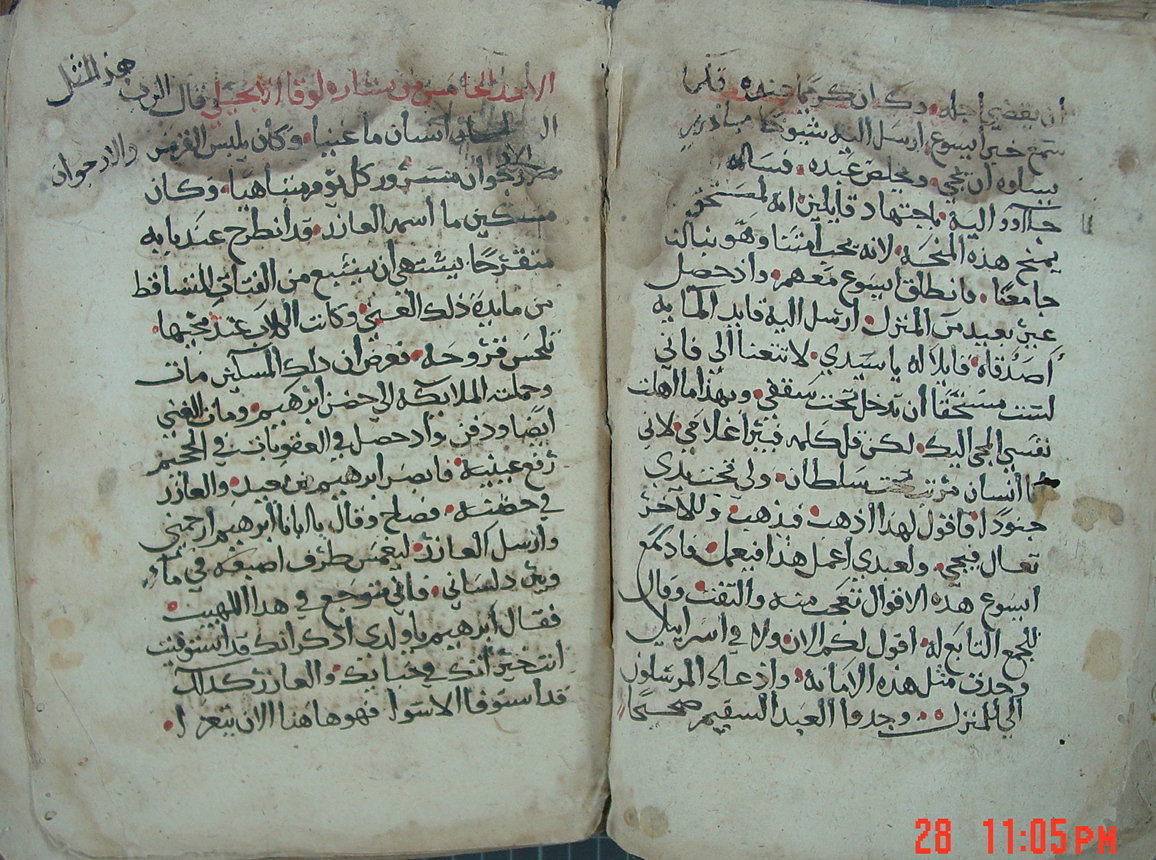 ان يقضي اجله وكان كريما عنده فلما
سمع خبر ايسوع ارسل اليه شيوخا
يسلوه ان يجي ويخلص عبده فساله
جآوو اليه باجتهاد قايلين انه لمستحق
يمنح هذه المنحه لانه يحب امتنا وهو بنا لنا
جامعنا فانطلق ايسوع معهم واذ حصل
غير بعيد من المنزل ارسل اليه قايد المايه
اصدقاه قايلا له يا سيدي لا تتعنا الي فاني
لست مستحقا ان تدخل تحت سقفي وبهذا ما اهلت
نفسي المجي اليك لكن قل كلمه فيبرا غلامي لاني
انسان مرتب تحت سلطان ولي تحت يدي
جنودا فاقول لهدا ادهب فيذهب وللاخر
تعال فيجي ولعبدي اعمل هذا فيعمل فاد سمع
ايسوع هذه الاقوال تعجب منه والتفت وقال
للجمع التابع له اقول لكم الان ولا في اسراييل
وجدت مثل هذه الامانه واذ عاد المرسلون
الي المنزل وجدوا العبد السقيم صحيحا
الاحد الخامس من بشاره لوقا الانجيلي قال الرب
هذ المثل
انسان ما غنيا وكان يلبس القرمز والارجوان
الار
يسر كل يوم متباهيا وكان
مسكين ما اسمه العازر قد انطرح عند بابه
متقرحا يشتهي ان يشبع من الفتات المتساقط
من مايدة ذلك الغني وكانت الكلاب عند مجيها
تلحس قروحه فعرض ان دلك المسكين مات
وحملته الملايكه الي حضن ابرهيم ومات الغني
ايضا ودفن واد حصل في العقوبات في الجحيم
رفع عينيه فابصر ابرهيم من بعيد والعازر
في حضنه فصاح وقال يا ابانا ابرهيم ارحمني
وارسل العازر ليغمس طرف اصبعه في ماء
ويبرد لساني فاني متوجع في هدا اللهيب
فقال ابرهيم يا ولدي ادكر انك قد استوفيت
انت خيراتك في حياتك والعازر كدلك
قد استوفا الاسوا فهو هاهنا الان يتعزا
28 11:05PM